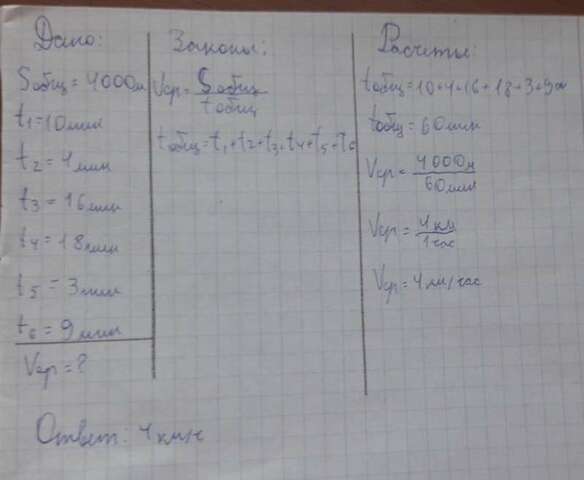 Дано:
Sобщ = 4000м
t1 = 10мин
t2 = 4мин
t3 = 16мин
t4 = 18мин
t5 = 3мин
t6 = 9мин
Vср = ?
Законы:
Vср = Sобщ / tобщ
tобщ = t1 + t2 + t3 + t4 + t5 + t6
Расчеты:
tобщ = 10 + 4 + 16 + 18 + 3 + 9м
tобщ = 60мин
Vср = 4000м / 60мин
Vср = 4км / 1час
Vср = 4км/час
Ответ: 4км/ч